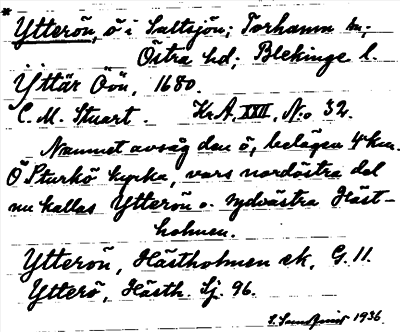 * Ytterön, ö i Saltsjön; Torhamn sn;
Östra hd; Blekinge l.
Yttär Öön, 1680.
C. M. Stuart. Kr.A. XXII, N:o 32.
Namnet avsåg den ö, belägen 4 km.
Ö Sturkö kyrka, vars nordöstra del
nu kallas Ytterön o. sydvästra Häst-
holmen.
Ytterön, Hästholmen ek. G. 11.
Ytterö, Hästh. Sj. 96.
1936